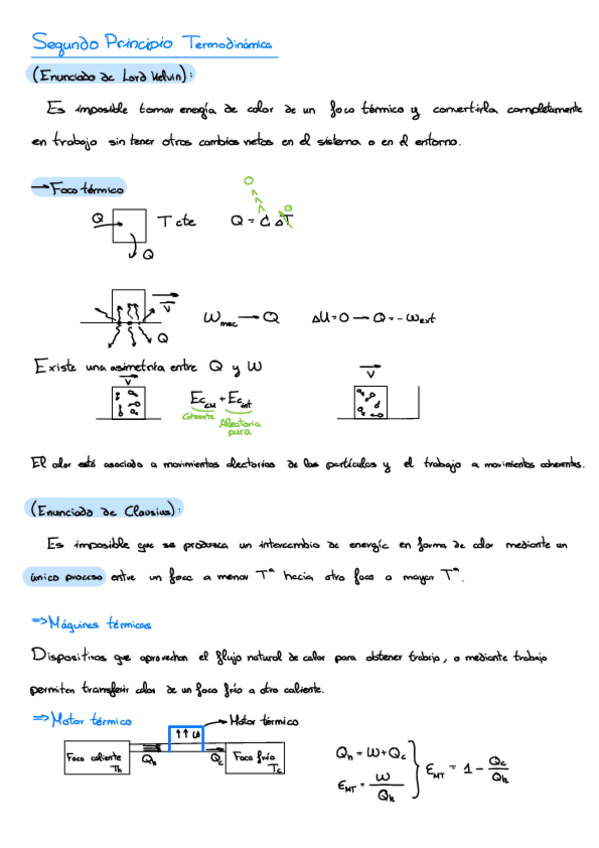 Segundo Principio Termodinámica
(Enunciado de Lord Kelvin):
Es imposible tomar energía de calor de un foco térmico y convertirla completamente
en trabajo sin tener otros cambios netos en el sistema o en el entorno.
→ Foco térmico
Q T cte Q = C ΔT
0 0
Q
V
W_mec → Q ΔU=0 — Q = -W_ext
Q
Existe una asimetría entre Q y W
V V
Ec_CM + Ec_int
Coherente Aleatoria
pura
El calor está asociado a movimientos aleatorios de las partículas y el trabajo a movimientos coherentes.
(Enunciado de Clausius):
Es imposible que se produzca un intercambio de energía en forma de calor mediante un
único proceso entre un foco a menor Tª hacia otro foco a mayor Tª.
⇒ Máquinas térmicas
Dispositivos que aprovechan el flujo natural de calor para obtener trabajo, o mediante trabajo
permiten transferir calor de un foco frío a otro caliente.
⇒ Motor térmico
→ Motor térmico
↑↑ W
Foco caliente T_h Q_h Q_c Foco frío T_c
Q_h = W + Q_c
ε_MT = W / Q_h
ε_MT = 1 - Q_c / Q_h